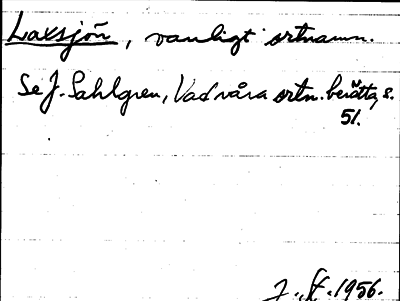 Laxsjön, vanligt ortnamn.
Se J. Sahlgren, Vad våra ortn. berätta, s.
51.
J. St. 1956.